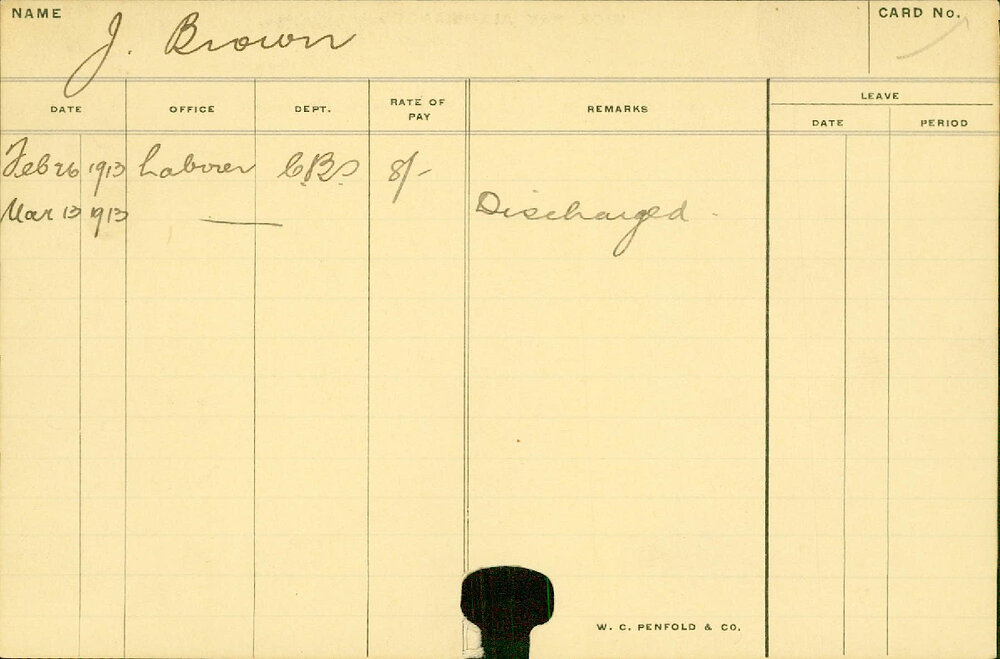 NAME J. Brown CARD No.
DATE OFFICE DEPT. RATE OF PAY REMARKS LEAVE
DATE PERIOD
Feb 26 1913 Laborer C.B.S 8/-
Mar 13 1913 — Discharged.
W. C. PENFOLD & CO.